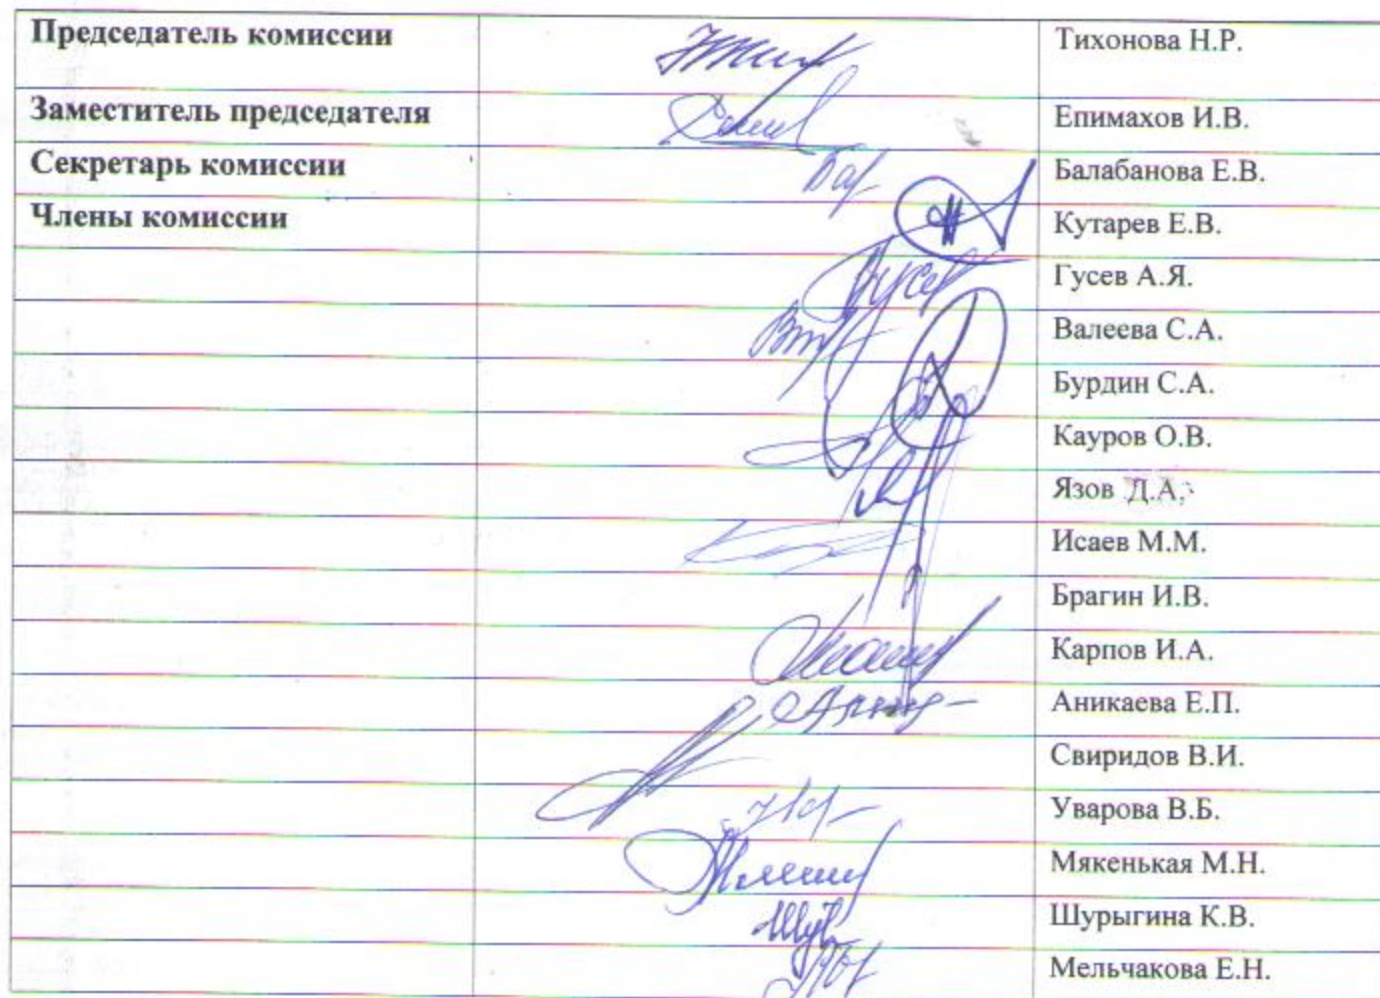 Председатель комиссии Тихонова Н.Р.
Заместитель председателя Епимахов И.В.
Секретарь комиссии Балабанова Е.В.
Члены комиссии Кутарев Е.В.
Гусев А.Я.
Валеева С.А.
Бурдин С.А.
Кауров О.В.
Язов Д.А.
Исаев М.М.
Брагин И.В.
Карпов И.А.
Аникаева Е.П.
Свиридов В.И.
Уварова В.Б.
Мякенькая М.Н.
Шурыгина К.В.
Мельчакова Е.Н.